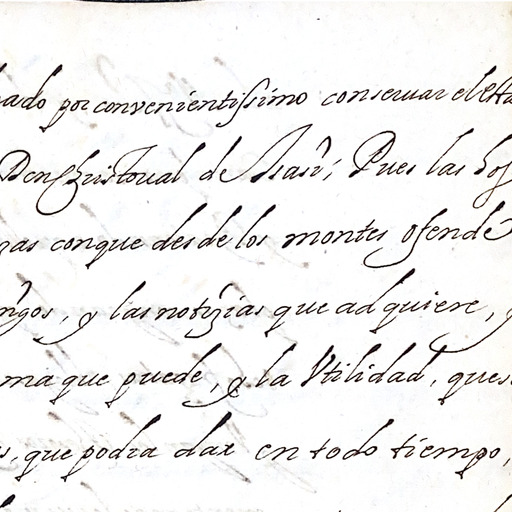 ado por convenientissimo conseruar el
Don Christoual de Isasi; Pues las hos
gas con que desde los montes ofendē
ngos, y las notizias que adquiere, y
ma que puede, y la Vtilidad, que se
s, que podra dar en todo tiempo,